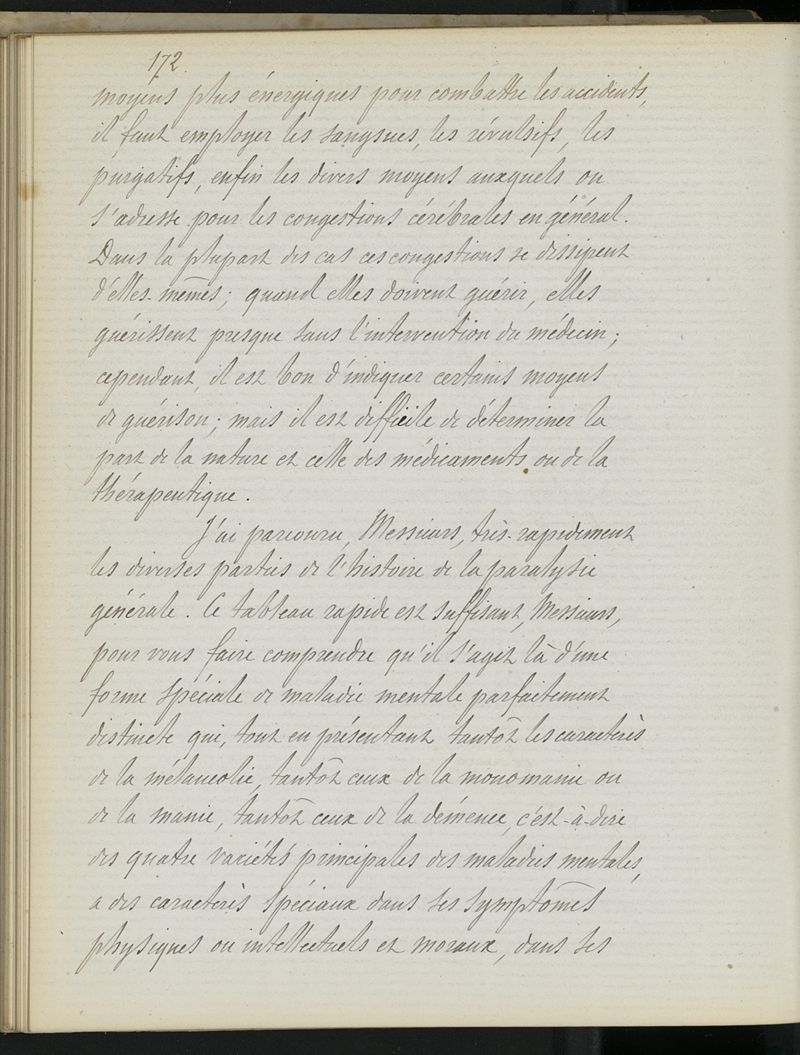 172
moyens plus énergiques pour combattre les accidents,
il faut employer les sangsues, les révulsifs, les
purgatifs, enfin les divers moyens auxquels on
s'adresse pour les congestions cérébrales en général.
Dans la plupart des cas ces congestions se dissipent
d'elles-mêmes ; quand elles doivent guérir, elles
guérissent presque sans l'intervention du médecin ;
cependant, il est bon d'indiquer certains moyens
de guérison ; mais il est difficile de déterminer la
part de la nature et celle des médicaments ou de la
thérapeutique.
J'ai parcouru, Messieurs, très-rapidement
les diverses parties de l'histoire de la paralysie
générale. Ce tableau rapide est suffisant, Messieurs,
pour vous faire comprendre qu'il s'agit là d'une
forme spéciale de maladie mentale parfaitement
distincte qui, tout en présentant tantôt les caractères
de la mélancolie, tantôt ceux de la monomanie ou
de la manie, tantôt ceux de la démence, c'est-à-dire
des quatre variétés principales des maladies mentales,
a des caractères spéciaux dans ses symptômes
physiques ou intellectuels et moraux, dans ses